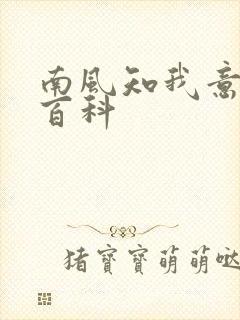 南風知我意
百科
猪寳寳萌萌哒